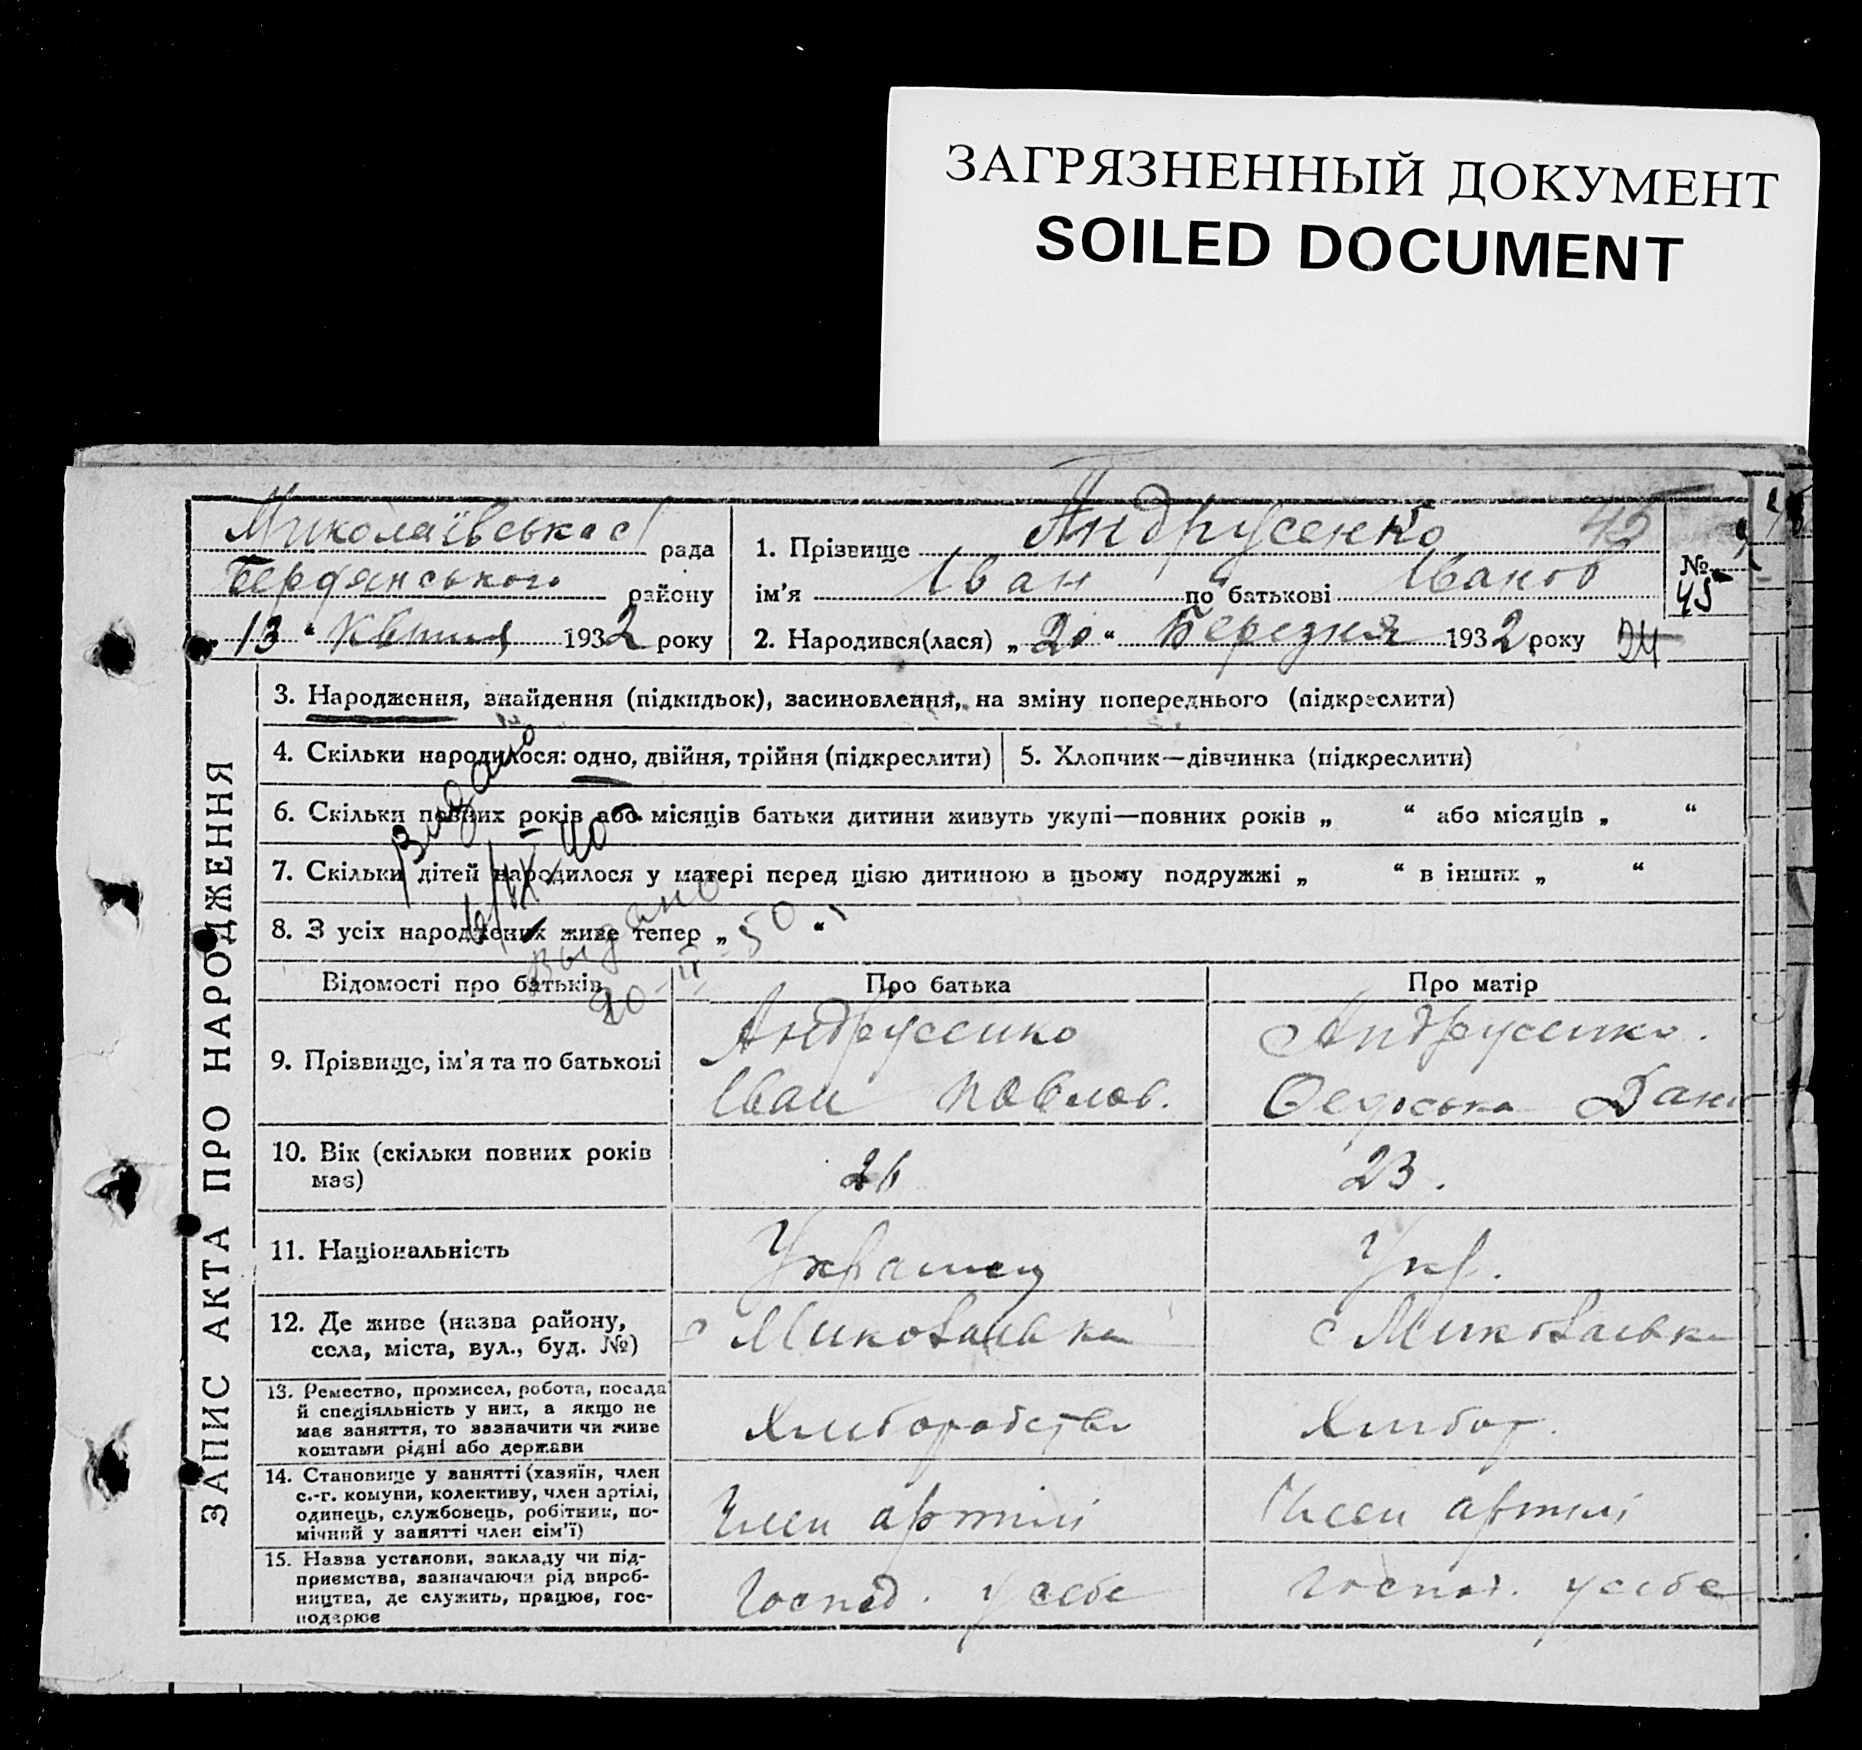 ЗАГРЯЗНЕННЫЙ ДОКУМЕНТ
SOILED DOCUMENT
Миколаївська с/ рада
Бердянського району
„13“ квітня 1932 року
1. Прізвище Андрусенко 45
ім’я Іван по батькові Іванов
2. Народився(лася) „20“ Березня 1932 року 24
№ 45
ЗАПИС АКТА ПРО НАРОДЖЕННЯ
3. Народження, знайдення (підкидьок), засиновлення, на зміну попереднього (підкреслити)
4. Скільки народилося: одно, двійня, трійня (підкреслити)
5. Хлопчик—дівчинка (підкреслити)
6. Скільки повних років або місяців батьки дитини живуть укупі—повних років „ “ або місяців „ “
7. Скільки дітей народилося у матері перед цією дитиною в цьому подружжі „ “ в інших „ “
8. З усіх народжених живе тепер „ “
Видано
6/IX-40
Выдано
20-II-50
Відомості про батьків
Про батька
Про матір
9. Прізвище, ім’я та по батькові
Андрусенко
Іван Павлов.
Андрусенко.
Федоська Дани
10. Вік (скільки повних років
має)
26
23.
11. Національність
Українец
Укр.
12. Де живе (назва району,
села, міста, вул., буд. №)
с Миколаївка
с Миколаївка
13. Ремество, промисел, робота, посада
й спеціяльність у них, а якщо не
має заняття, то зазначити чи живе
коштами рідні або держави
Хліборобство
Хлібор.
14. Становище у занятті (хазяїн, член
с.-г. комуни, колективу, член артілі,
одинець, службовець, робітник, по-
мічний у занятті член сім’ї)
Член артілі
Член артілі
15. Назва установи, закладу чи під-
приємства, зазначаючи рід вироб-
ництва, де служить, працює, гос-
подарює
Господ. у себе
Господ. у себе